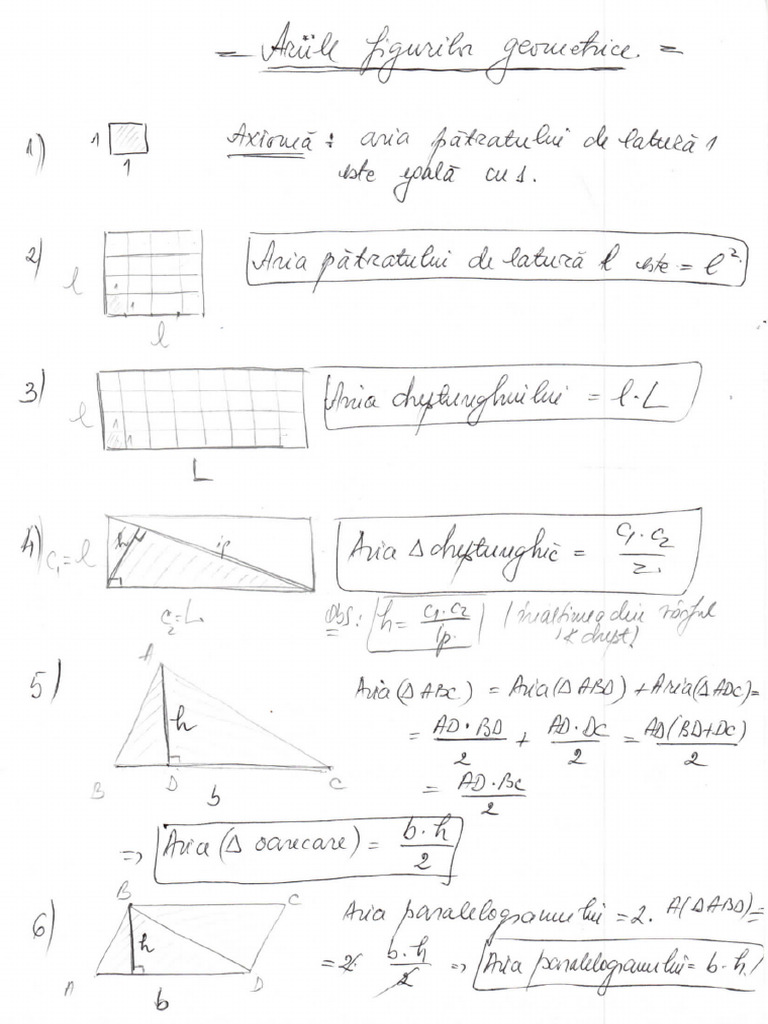 = Ariile figurilor geometrice. =
1) 1 1 Axiomă : aria pătratului de latură 1
este egală cu 1.
2) l l 1 1 Aria pătratului de latură l este = l².
3) l L 1 1 Aria dreptunghiului = l·L
4) c₁=l h ip c₂=L Aria Δ dreptunghic = c₁·c₂/2
obs: h = c₁·c₂/ip. (înălțimea din vârful
∢ drept)
5) A B D C h b Aria(ΔABC) = Aria(ΔABD) + Aria(ΔADC)=
= AD·BD/2 + AD·DC/2 = AD(BD+DC)/2
= AD·BC/2
=> Aria(Δ oarecare) = b·h/2
6) B C A D h b Aria paralelogramului = 2. A(ΔABD)=
= 2· b·h/2 => Aria paralelogramului = b·h